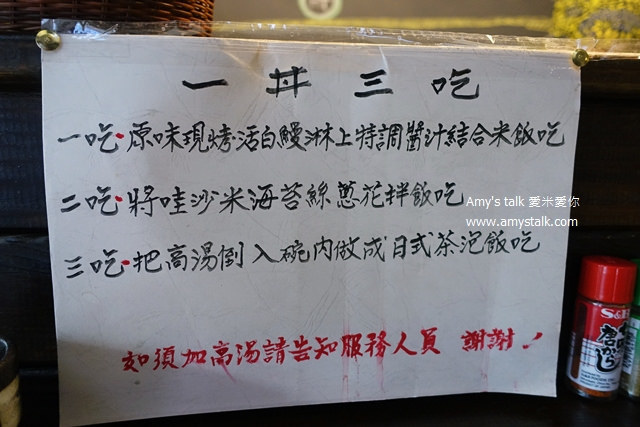 一丼三吃
一吃·原味現烤活白鰻淋上特調醬汁結合米飯吃
二吃·將哇沙米海苔絲蔥花拌飯吃
三吃·把高湯倒入碗內做成日式茶泡飯吃
如須加高湯請告知服務人員 謝謝!
Amy's talk 愛米愛你
www.amystalk.com
S&B
唐がらし